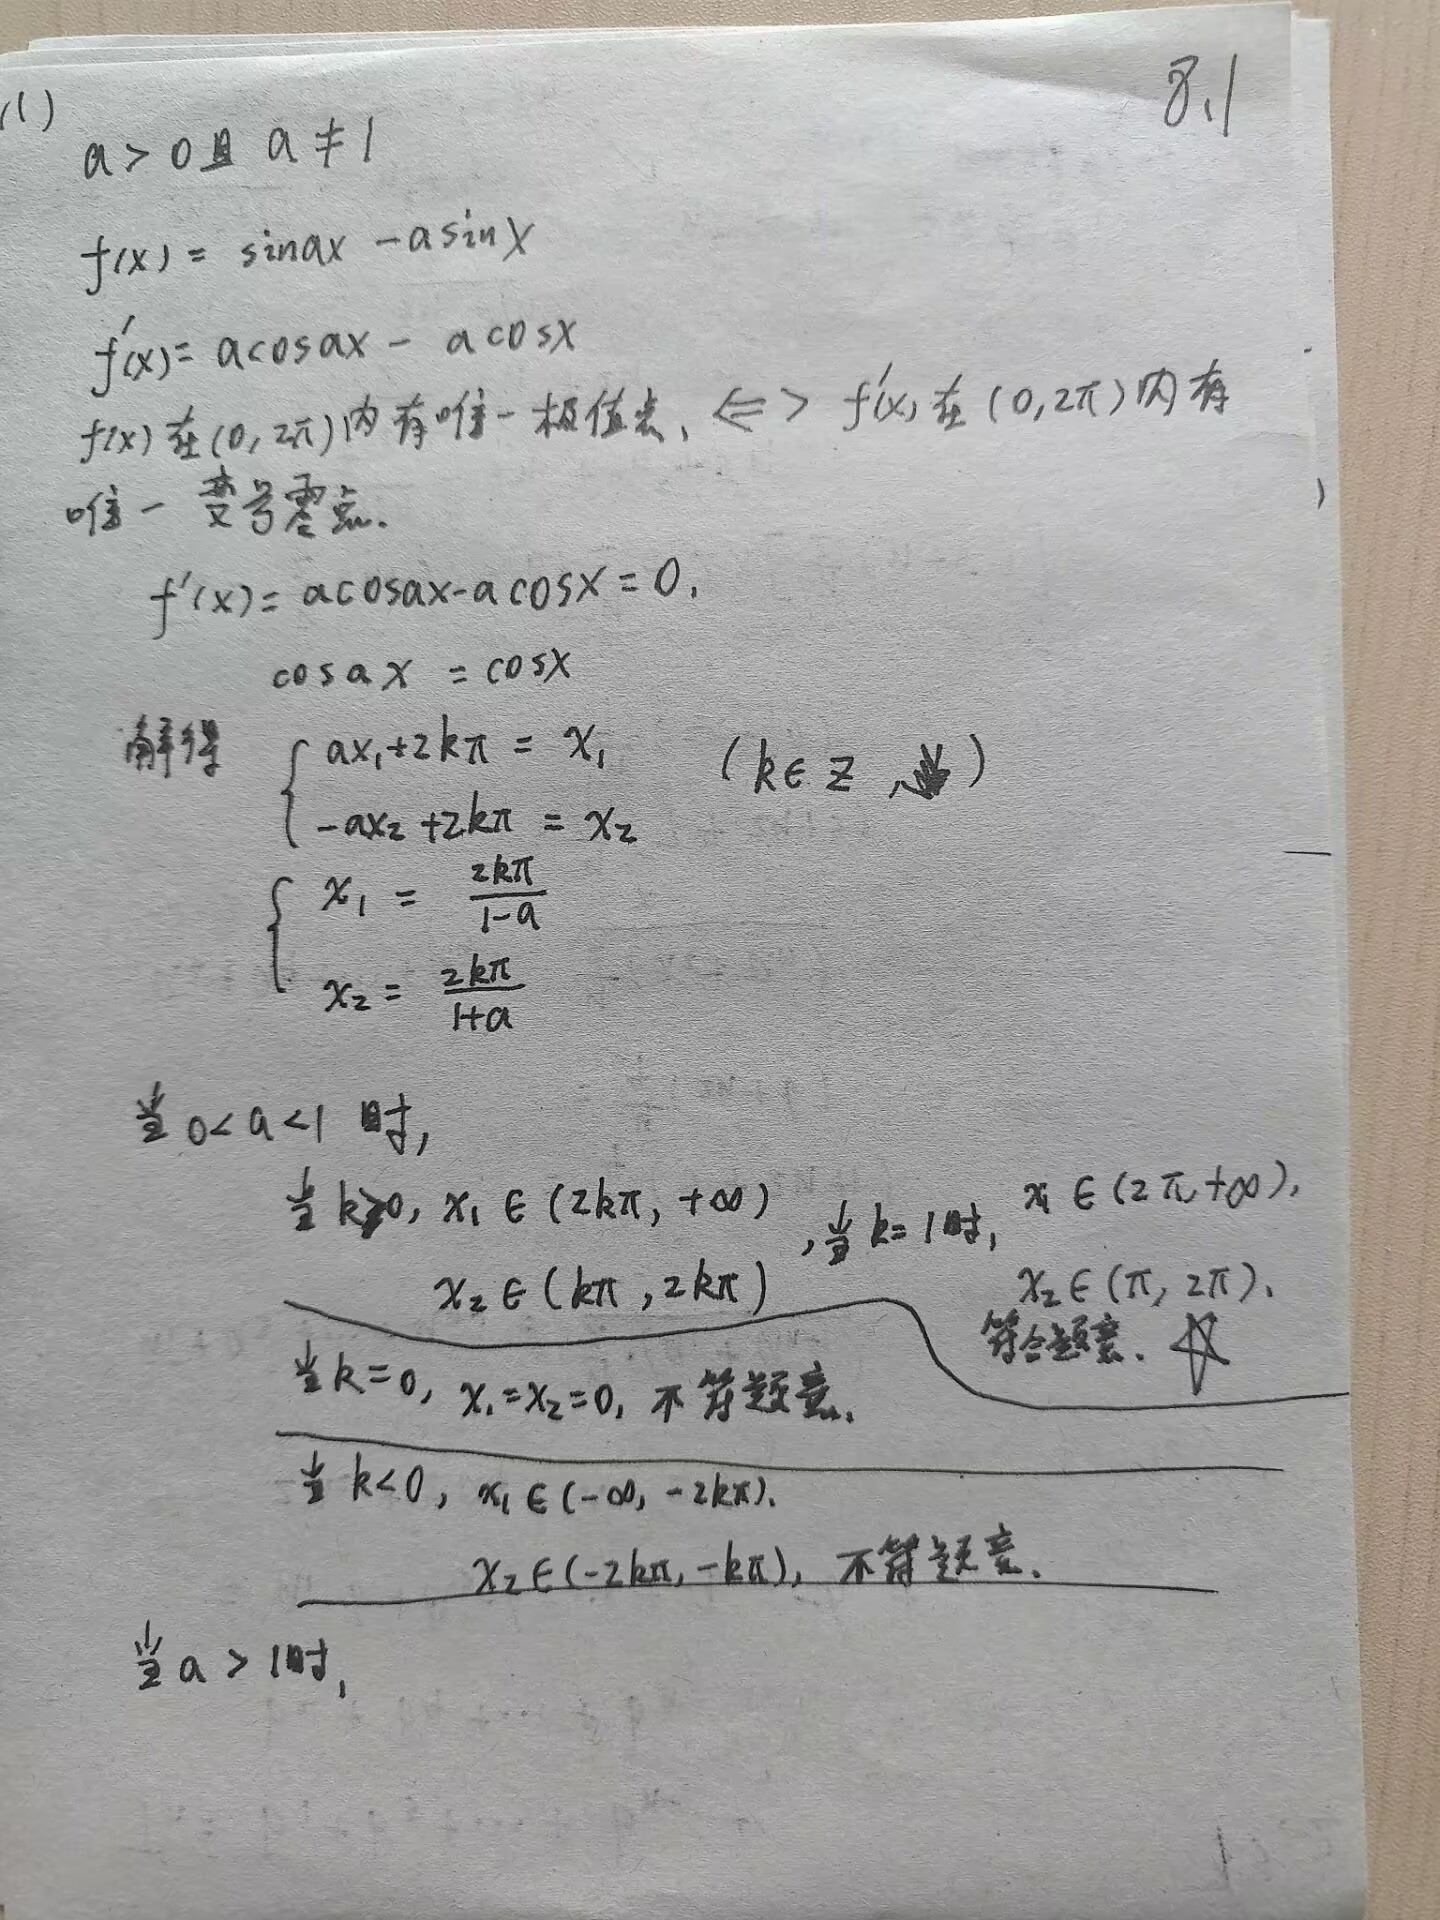 8.1
(1)
a>0且 a≠1
f(x)= sinax -asinx
f'(x)= acosax - acosx
f(x)在(0,2π)内有唯一极值点, <=> f'(x)在(0,2π)内有
唯一变号零点.
f'(x)= acosax-acosx=0,
cosax = cosx
解得 { ax₁+2kπ = x₁ (k∈Z, )
-ax₂+2kπ = x₂
{ x₁ = 2kπ/(1-a)
x₂ = 2kπ/(1+a)
当0<a<1时,
当k>0, x₁∈(2kπ, +∞), 当k=1时, x₁∈(2π,+∞),
x₂∈(kπ, 2kπ) x₂∈(π, 2π).
符合题意. ☆
当k=0, x₁=x₂=0, 不符题意.
当k<0, x₁∈(-∞, -2kπ).
x₂∈(-2kπ, -kπ), 不符题意.
当a>1时,